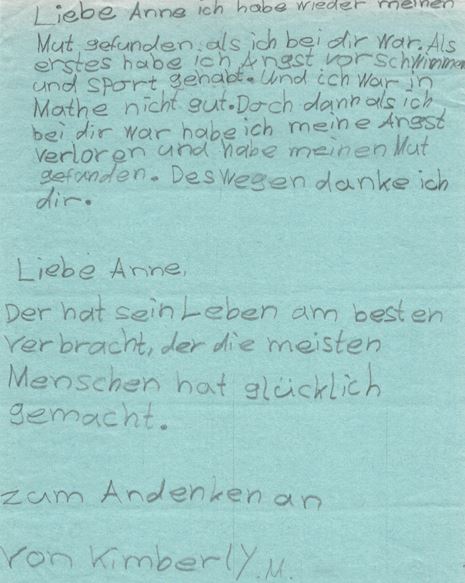 Liebe Anne ich habe wieder meinen
Mut gefunden. als ich bei dir war. Als
erstes habe ich Angst vor schwimmen
und sport gehabt. Und ich war in
Mathe nicht gut. Doch dann als ich
bei dir war habe ich meine Angst
verloren und habe meinen Mut
gefunden. Deswegen danke ich
dir.
Liebe Anne,
Der hat sein Leben am besten
verbracht, der die meisten
Menschen hat glücklich
gemacht.
zum Andenken an
von Kimberly M.